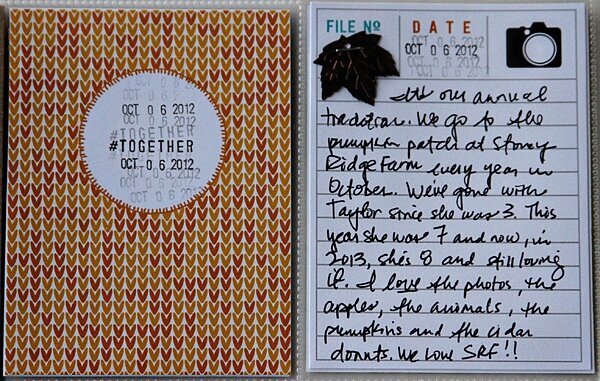 OCT 0 6 2012
OCT 0 6 2012
#TOGETHER
#TOGETHER
OCT 0 6 2012
OCT 0 6 2012
OCT 0 6 2012
FILE Nº
DATE
OCT 0 6 2012
It's our annual
tradition. We go to the
pumpkin patch at Stoney
Ridge Farm every year in
October. We've gone with
Taylor since she was 3. This
year she was 7 and now, in
2013, she's 8 and still loving
it. I love the photos, the
apples, the animals, the
pumpkins and the cider
donuts. We love SRF!!